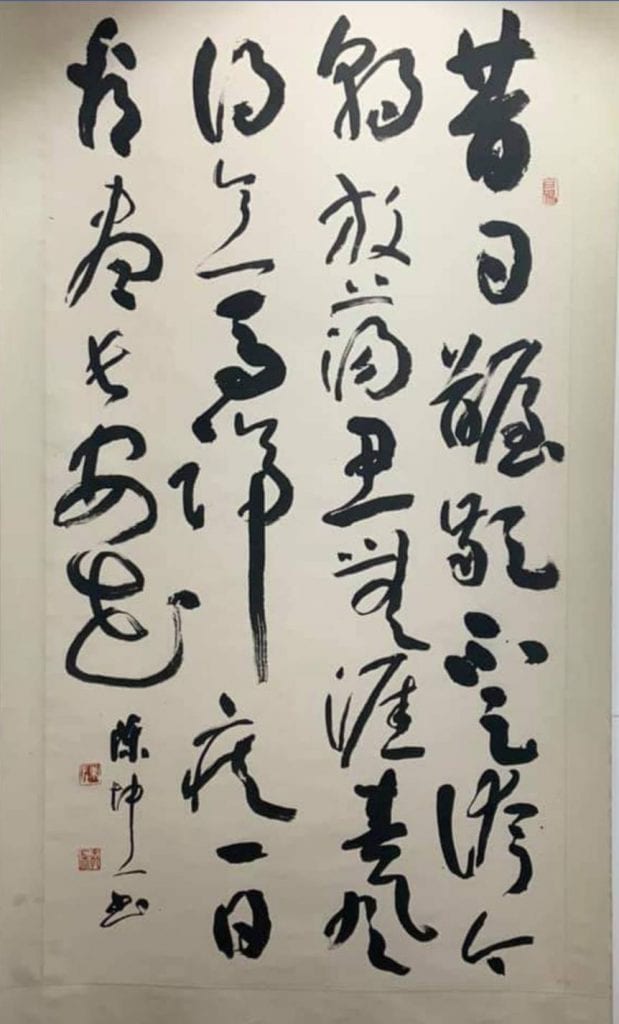 昔日齷齪不足誇今
朝放蕩思無涯春風
得意馬蹄疾一日
看盡長安花
陳坤一書